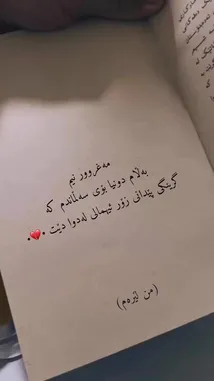 مەغروور نیم
بەڵام دونیا بۆی سەلماندم کە
گرینگی پێدانی زۆر ئیهمالی لەدوا دێت
(من لێرەم)